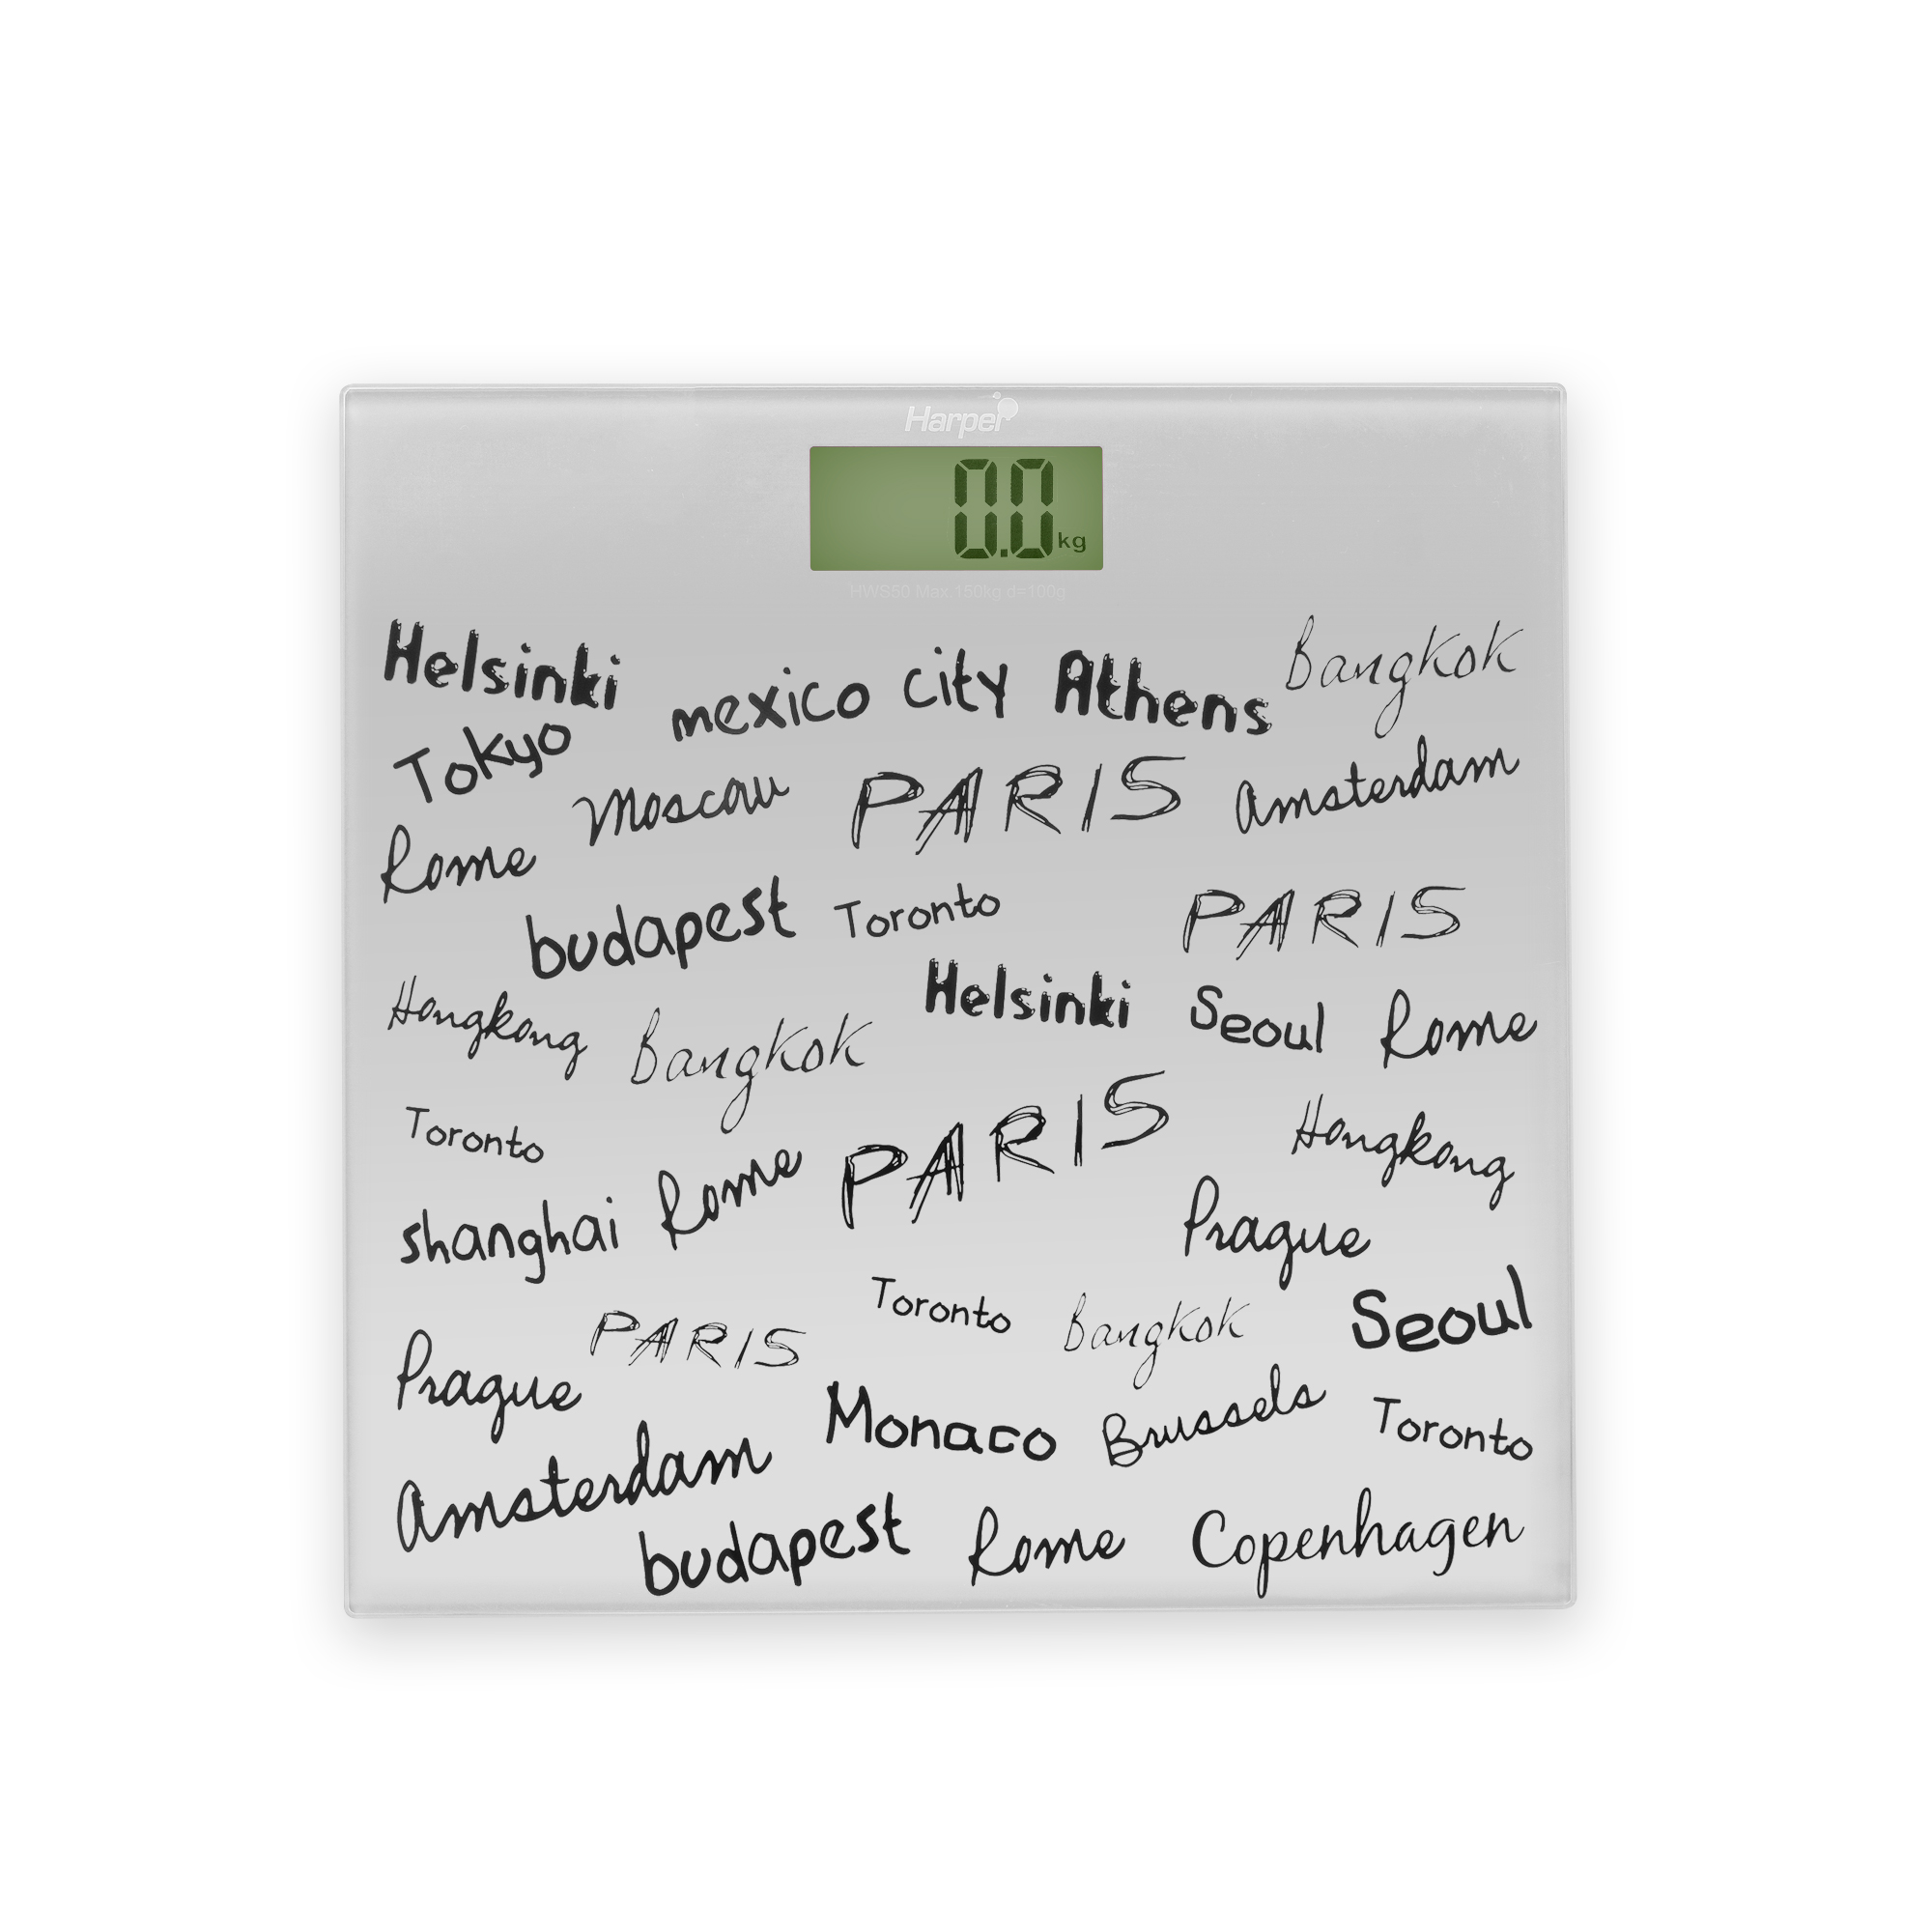 Harper
0.0 kg
HWS50 Max.150kg d=100g
Helsinki mexico city Athens Bangkok
Tokyo Moscow PARIS Amsterdam
Rome
budapest Toronto PARIS
Hongkong Bangkok Helsinki Seoul Rome
Toronto Rome PARIS Hongkong
shanghai Prague
PARIS Toronto Bangkok Seoul
Prague Monaco Brussels Toronto
Amsterdam
budapest Rome Copenhagen